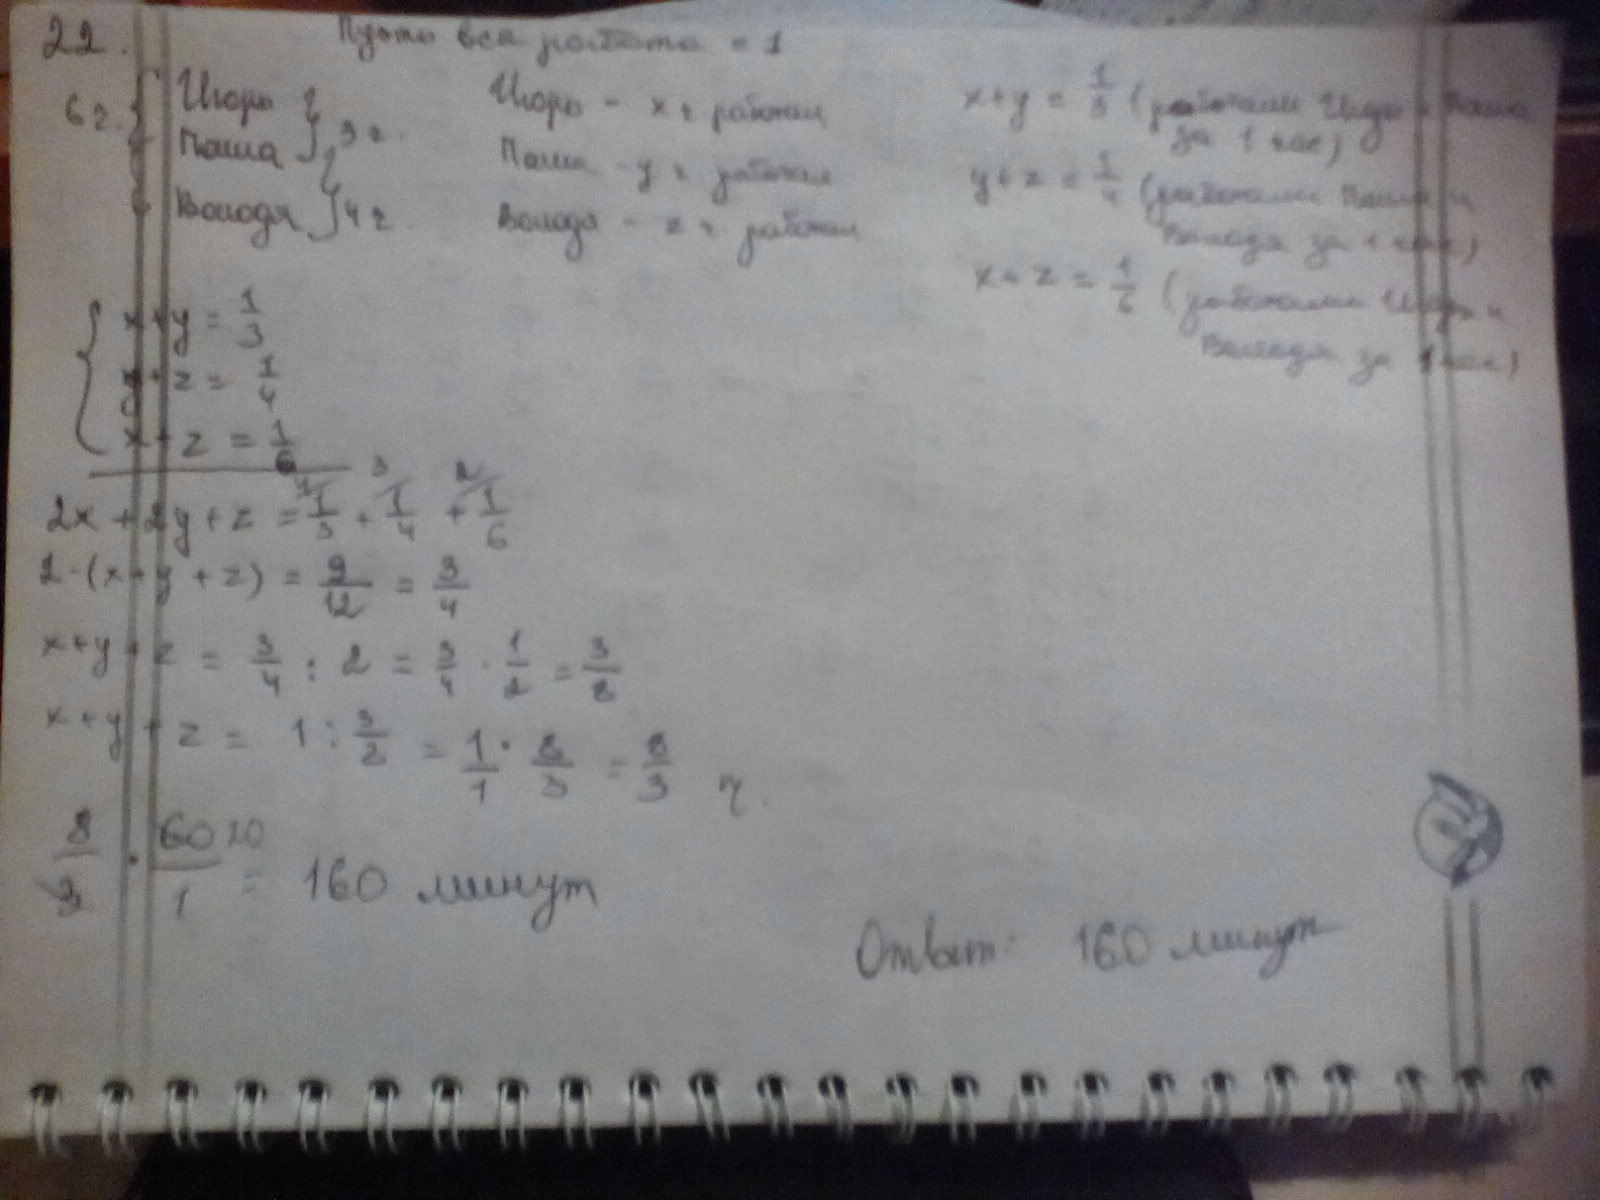 22. Пусть вся работа = 1
6 ч. Игорь
Паша 3 ч.
Володя 4 ч.
Игорь - x ч работал
Паша - y ч работал
Володя - z ч работал
x+y = 1/3 (работали Игорь и Паша
за 1 час)
y+z = 1/4 (работали Паша и
Володя за 1 час)
x+z = 1/6 (работали Игорь и
Володя за 1 час)
x+y = 1/3
y+z = 1/4
x+z = 1/6
2x+2y+z = 1/3 + 3/ 1/4 + 2/ 1/6
2·(x+y+z) = 9/12 = 3/4
x+y+z = 3/4 : 2 = 3/4 · 1/2 = 3/8
x+y+z = 1 : 3/8 = 1/1 · 8/3 = 8/3 ч.
8/3 · 60 20/1 = 160 минут
Ответ: 160 минут